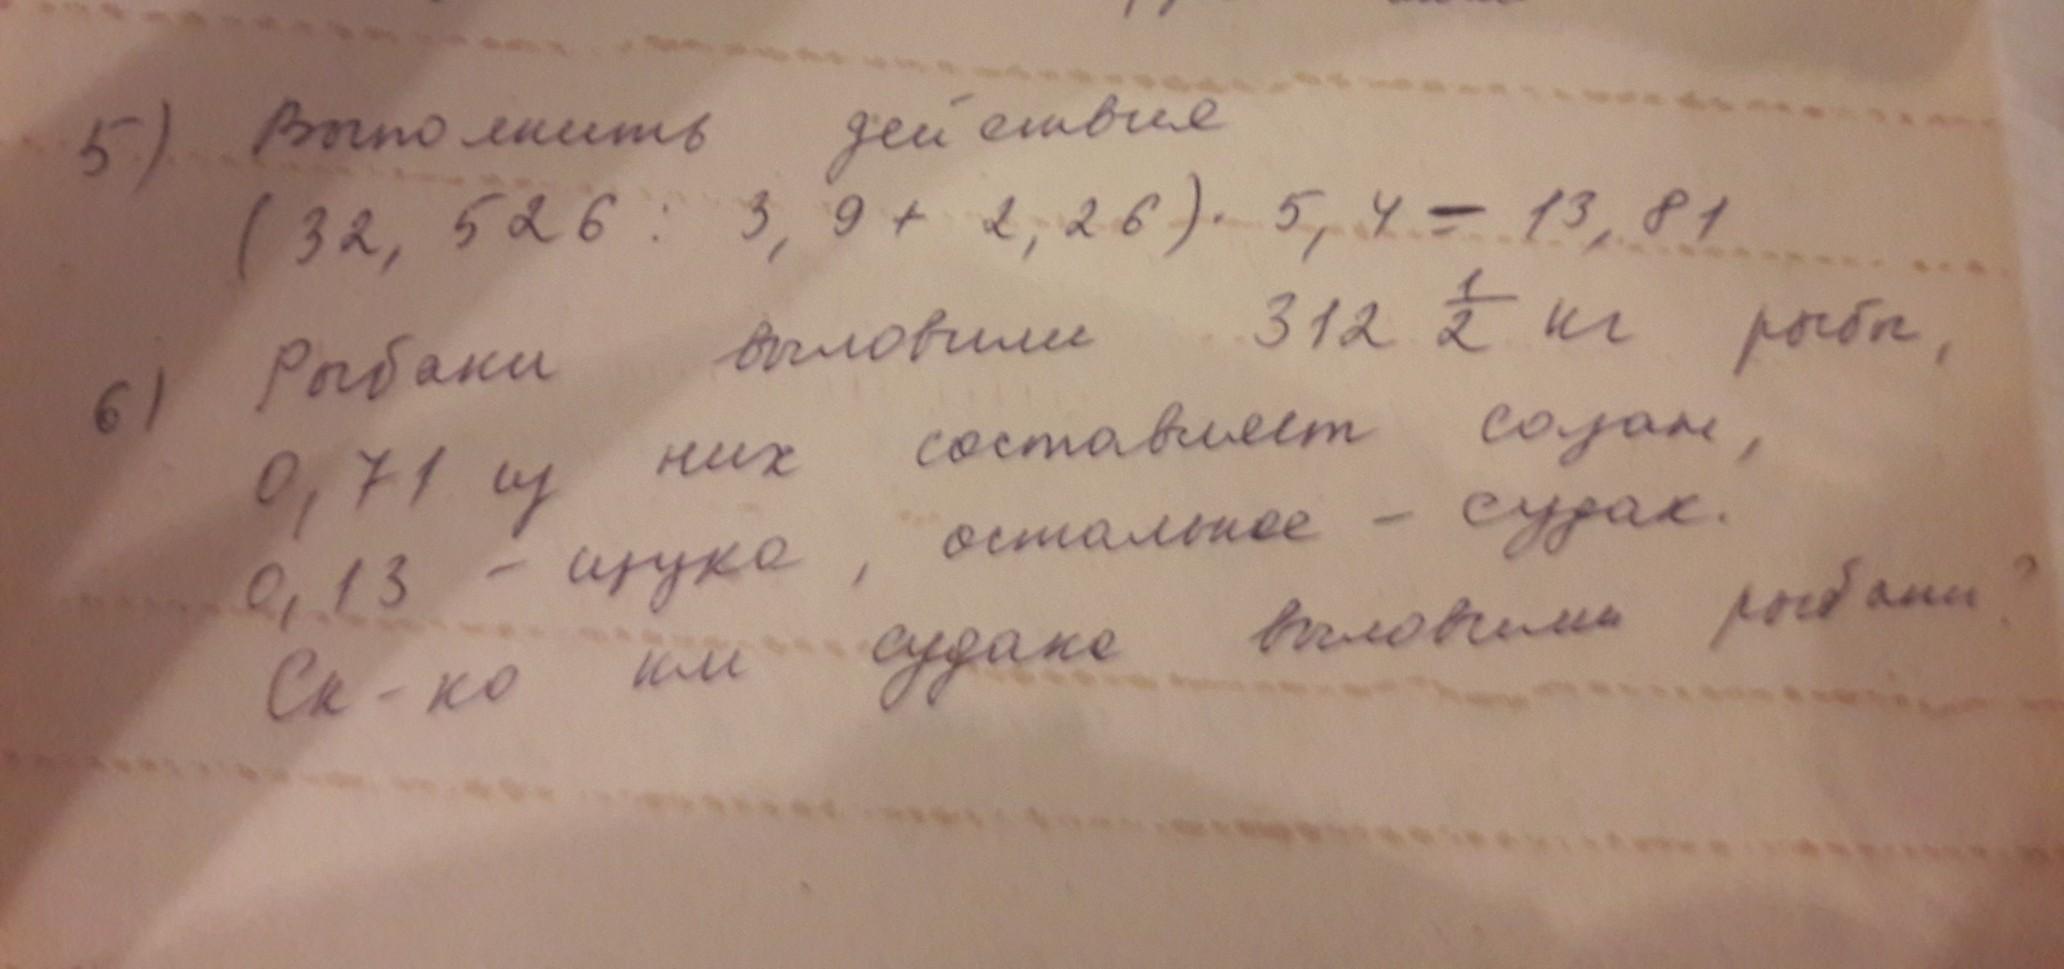 5) Выполнить действие
(32,526 : 3,9 + 2,26) · 5,4 = 13,81
6) Рыбаки выловили 312 1/2 кг рыбы,
0,71 из них составляет сазан,
0,13 - щука, остальное - судак.
Ск-ко км судака выловили рыбаки?